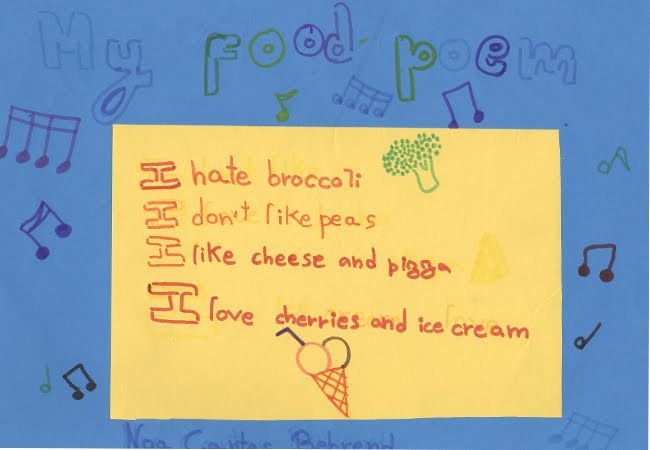 My food poem
I hate broccoli
I don't like peas
I like cheese and pizza
I love cherries and ice cream
Noa Behrend